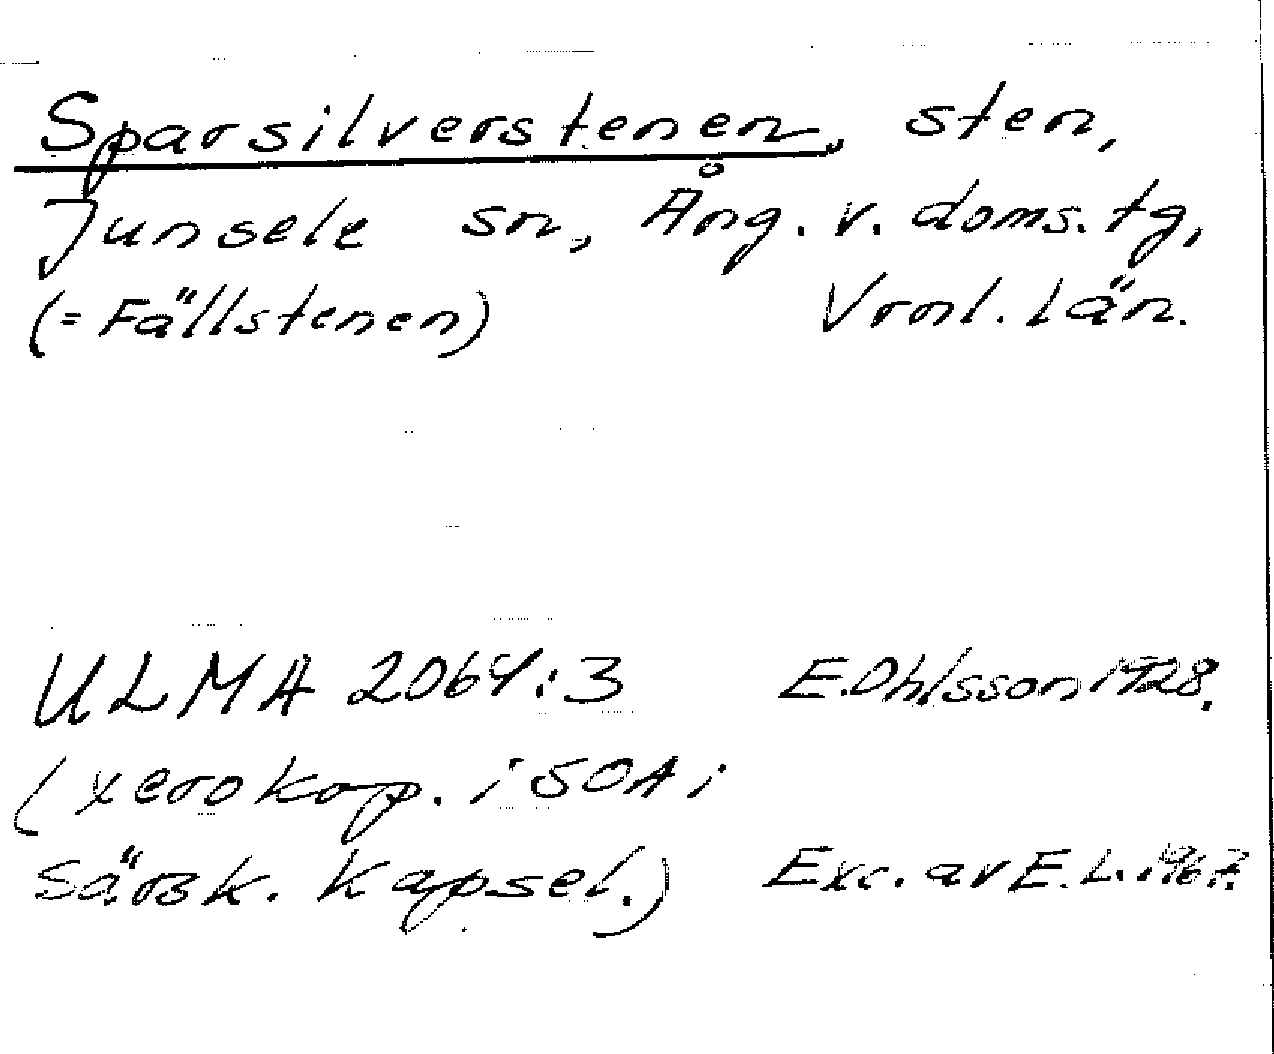 Sparsilverstenen, sten,
Junsele sn, Ång. v. doms. tg,
(= Fällstenen) Vrnl. län.
ULMA 2064:3 E. Ohlsson 1928.
(xerokop. i SOA i
särsk. kapsel.) Exc. av E. L. 1967.